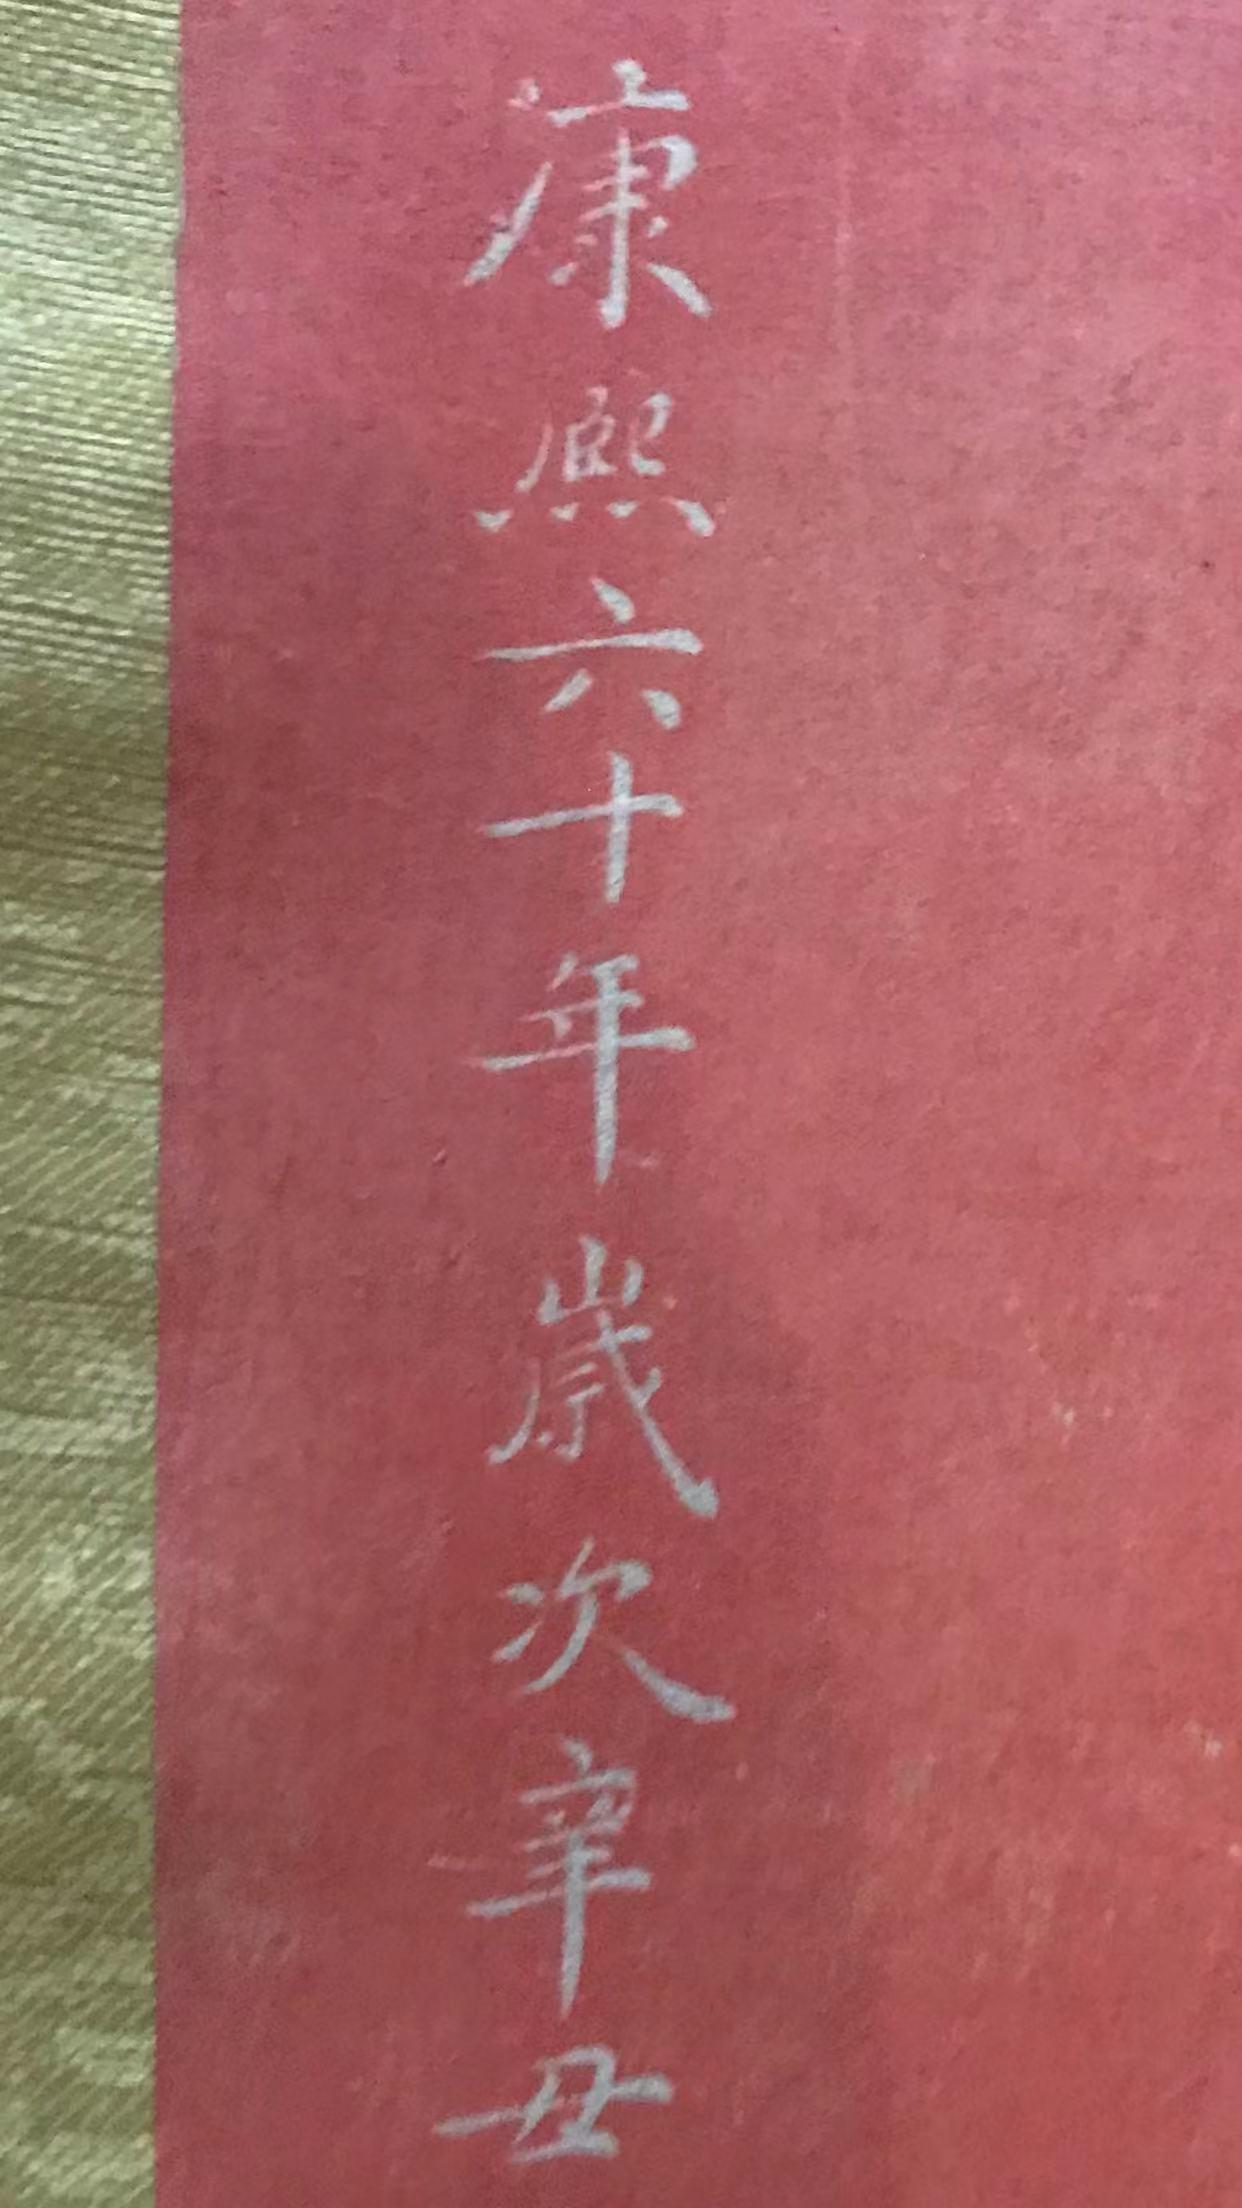 康熙六十年歲次辛丑